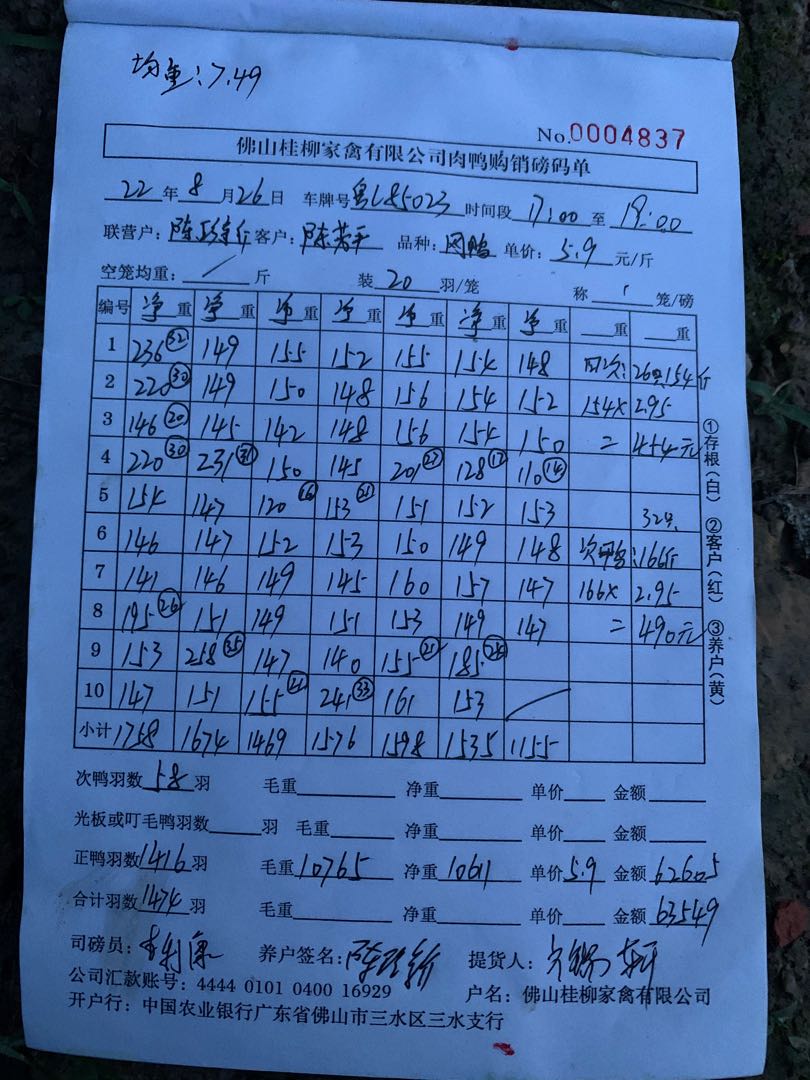 均重:7.49
No.0004837
佛山桂柳家禽有限公司肉鸭购销磅码单
22年8月26日 车牌号粤L85023时间段17:00至19:00
联营户: 客户: 品种: 单价:5.9元/斤
空笼均重: / 斤 装20羽/笼 称1笼/磅
编号 净重 净重 净重 净重 净重 净重 净重 重 重
1 236(32) 149 155 152 155 154 148 26只154斤
2 220(30) 149 150 148 156 154 152 154× 2.95
3 146(20) 145 142 148 156 154 150 = 454元
4 220(30) 231(31) 150 145 201(27) 128(17) 110(14)
5 154 147 120(16) 153(21) 151 152 153 32只
6 146 147 152 153 150 149 148 次鸭:166斤
7 141 146 149 145 160 157 147 166× 2.95
8 195(26) 151 149 151 153 149 147 = 490元
9 153 258(35) 147 140 155(21) 185(25)
10 147 151 155(21) 241(33) 161 153
小计 1758 1674 1469 1576 1598 1535 1155
①存根(白) ②客户(红) ③养户(黄)
次鸭羽数58羽 毛重 净重 单价 金额
光板或叮毛鸭羽数 羽 毛重 净重 单价 金额
正鸭羽数1416羽 毛重10765 净重10611 单价5.9 金额62605
合计羽数1474羽 毛重 净重 单价 金额63549
司磅员: 养户签名: 提货人:
公司汇款账号:4444 0101 0400 16929 户名:佛山桂柳家禽有限公司
开户行:中国农业银行广东省佛山市三水区三水支行